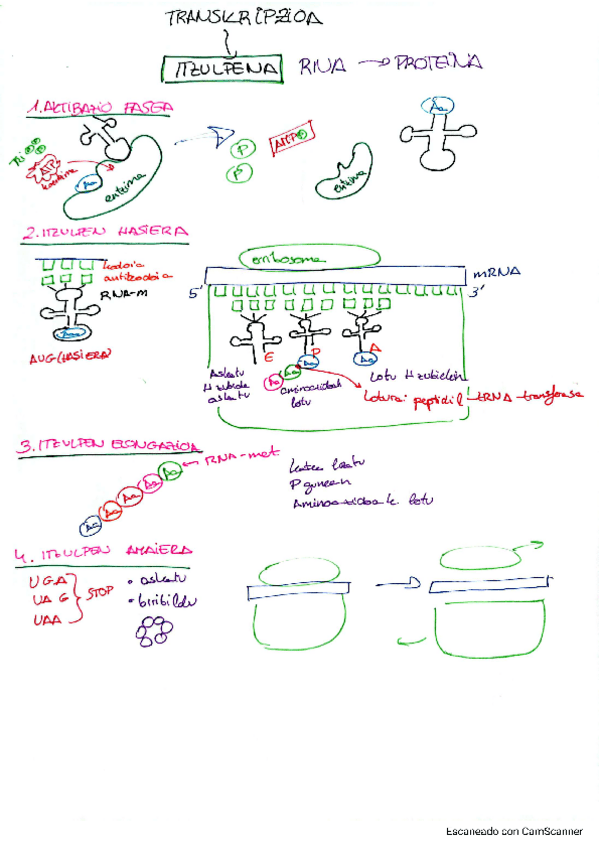 TRANSKRIPZIOA
ITZULPENA RNA → PROTEINA
1. AKTIBAZIO FASEA
ATP
Aa
entzima
P
P
AMP
entzima
Aa
2. ITZULPEN HASIERA
kodoia
antikodoia
RNA-M
Aa
AUG (HASIERA)
erribosoma
mRNA
5'
3'
E
P
A
Aa
Aa
Aa
Aa
Askatu
askatu
aminoazidoak
lotu
Lotu
Lotura: peptidil-tRNA-transferasa
3. ITZULPEN ELONGAZIOA
RNA-met
Aa
Aa
Aa
Aa
Aa
P gunean
Aminoazidoak lotu
4. ITZULPEN AMAIERA
UGA
UAG
UAA
STOP
• askatu
• biribildu
Escaneado con CamScanner